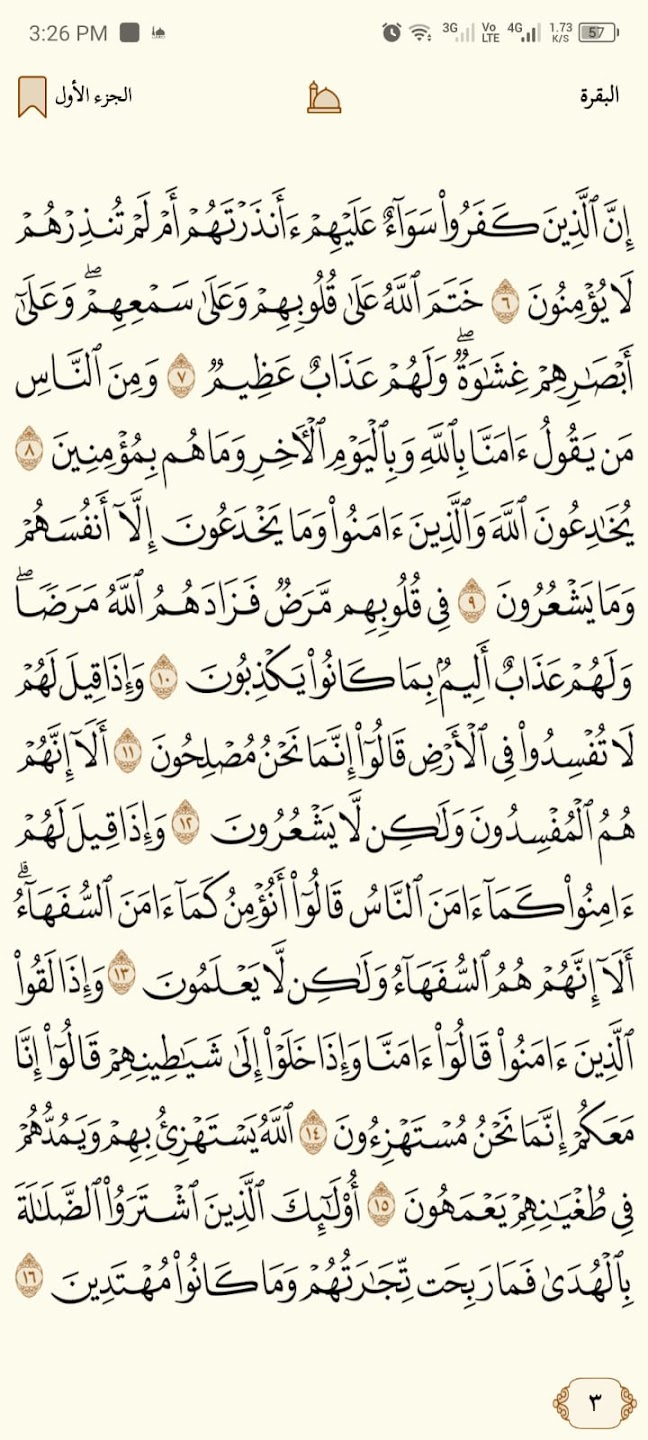 3:26 PM 3G Vo LTE 4G 1.73 K/S 57
البقرة الجزء الأول
إِنَّ ٱلَّذِينَ كَفَرُوا۟ سَوَآءٌ عَلَيْهِمْ ءَأَنذَرْتَهُمْ أَمْ لَمْ تُنذِرْهُمْ
لَا يُؤْمِنُونَ ٦ خَتَمَ ٱللَّهُ عَلَىٰ قُلُوبِهِمْ وَعَلَىٰ سَمْعِهِمْ ۖ وَعَلَىٰٓ
أَبْصَـٰرِهِمْ غِشَـٰوَةٌ ۖ وَلَهُمْ عَذَابٌ عَظِيمٌ ٧ وَمِنَ ٱلنَّاسِ
مَن يَقُولُ ءَامَنَّا بِٱللَّهِ وَبِٱلْيَوْمِ ٱلْـَٔاخِرِ وَمَا هُم بِمُؤْمِنِينَ ٨
يُخَـٰدِعُونَ ٱللَّهَ وَٱلَّذِينَ ءَامَنُوا۟ وَمَا يَخْدَعُونَ إِلَّآ أَنفُسَهُمْ
وَمَا يَشْعُرُونَ ٩ فِى قُلُوبِهِم مَّرَضٌ فَزَادَهُمُ ٱللَّهُ مَرَضًا ۖ
وَلَهُمْ عَذَابٌ أَلِيمٌۢ بِمَا كَانُوا۟ يَكْذِبُونَ ١٠ وَإِذَا قِيلَ لَهُمْ
لَا تُفْسِدُوا۟ فِى ٱلْأَرْضِ قَالُوٓا۟ إِنَّمَا نَحْنُ مُصْلِحُونَ ١١ أَلَآ إِنَّهُمْ
هُمُ ٱلْمُفْسِدُونَ وَلَـٰكِن لَّا يَشْعُرُونَ ١٢ وَإِذَا قِيلَ لَهُمْ
ءَامِنُوا۟ كَمَآ ءَامَنَ ٱلنَّاسُ قَالُوٓا۟ أَنُؤْمِنُ كَمَآ ءَامَنَ ٱلسُّفَهَآءُ ۗ
أَلَآ إِنَّهُمْ هُمُ ٱلسُّفَهَآءُ وَلَـٰكِن لَّا يَعْلَمُونَ ١٣ وَإِذَا لَقُوا۟
ٱلَّذِينَ ءَامَنُوا۟ قَالُوٓا۟ ءَامَنَّا وَإِذَا خَلَوْا۟ إِلَىٰ شَيَـٰطِينِهِمْ قَالُوٓا۟ إِنَّا
مَعَكُمْ إِنَّمَا نَحْنُ مُسْتَهْزِءُونَ ١٤ ٱللَّهُ يَسْتَهْزِئُ بِهِمْ وَيَمُدُّهُمْ
فِى طُغْيَـٰنِهِمْ يَعْمَهُونَ ١٥ أُو۟لَـٰٓئِكَ ٱلَّذِينَ ٱشْتَرَوُا۟ ٱلضَّلَـٰلَةَ
بِٱلْهُدَىٰ فَمَا رَبِحَت تِّجَـٰرَتُهُمْ وَمَا كَانُوا۟ مُهْتَدِينَ ١٦
٣